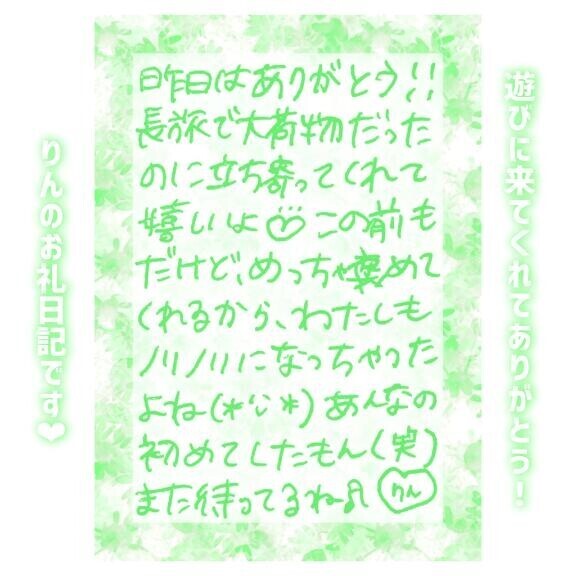 遊びに来てくれてありがとう!
昨日はありがとう!!
長旅で大荷物だった
のに立ち寄ってくれて
嬉しいよ♡この前も
だけど、めっちゃ褒めて
くれるから、わたしも
ノリノリになっちゃった
よね(*'ω'*)あんなの
初めてしたもん(笑)
また待ってるね♪ りん
りんのお礼日記です❤